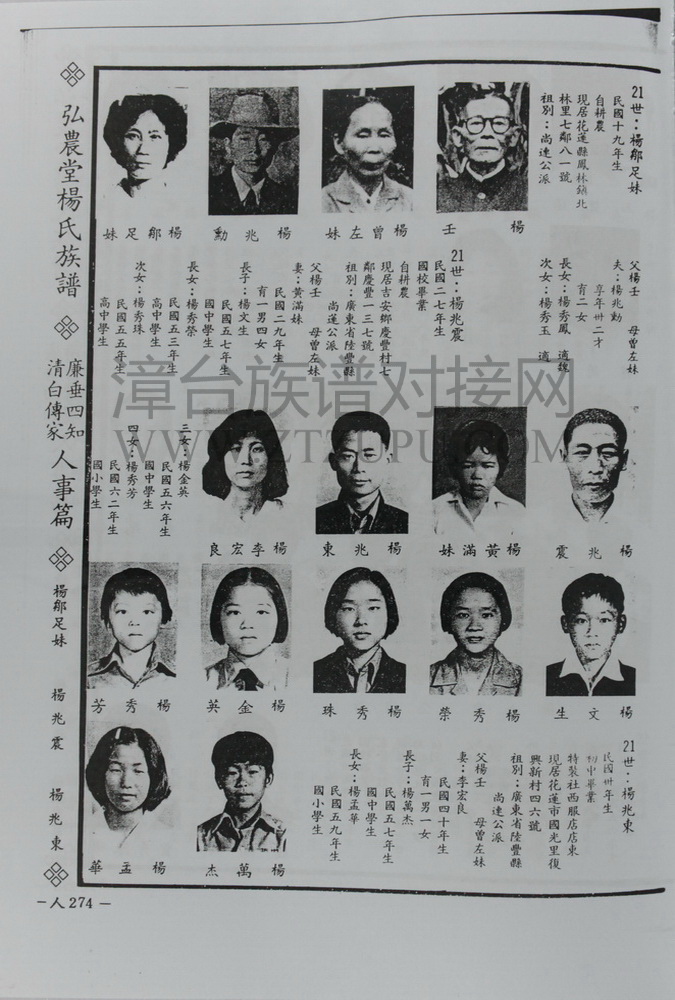 弘農堂楊氏族譜
廉垂四知
清白傳家
人事篇
楊鄔足妹
楊兆震
楊兆東
21世：楊鄔足妹
民國十九年生
自耕農
現居花蓮縣鳳林鎮北
林里七鄰八一號
祖別：尚連公派
父楊壬 母曾左妹
夫：楊兆勳
享年卅二才
育二女
長女：楊秀鳳 適魏
次女：楊秀玉 適
楊壬
楊曾左妹
楊兆勳
楊鄔足妹
21世：楊兆震
民國二七年生
國校畢業
自耕農
現居吉安鄉慶豐村七
鄰慶豐一三七號
祖別：廣東省陸豐縣
尚蓮公派
父楊壬 母曾左妹
妻：黃滿妹
民國二九年生
育一男四女
長子：楊文生
民國五七年生
國中學生
長女：楊秀榮
民國五三年生
高中學生
次女：楊秀珠
民國五五年生
高中學生
三女：楊金英
民國五六年生
國中學生
四女：楊秀芳
民國六二年生
國小學生
楊兆震
楊黃滿妹
楊兆東
楊李宏良
楊文生
楊秀榮
楊秀珠
楊金英
楊秀芳
21世：楊兆東
民國卅年生
初中畢業
特裝社西服店店東
現居花蓮市國光里復
興新村四六號
祖別：廣東省陸豐縣
尚達公派
父楊壬 母曾左妹
妻：李宏良
民國四十年生
育一男一女
長子：楊萬杰
民國五七年生
國中學生
長女：楊孟華
民國五九年生
國小學生
楊萬杰
楊孟華
漳台族谱对接网
WWW.ZTZUPU.COM
－人274－